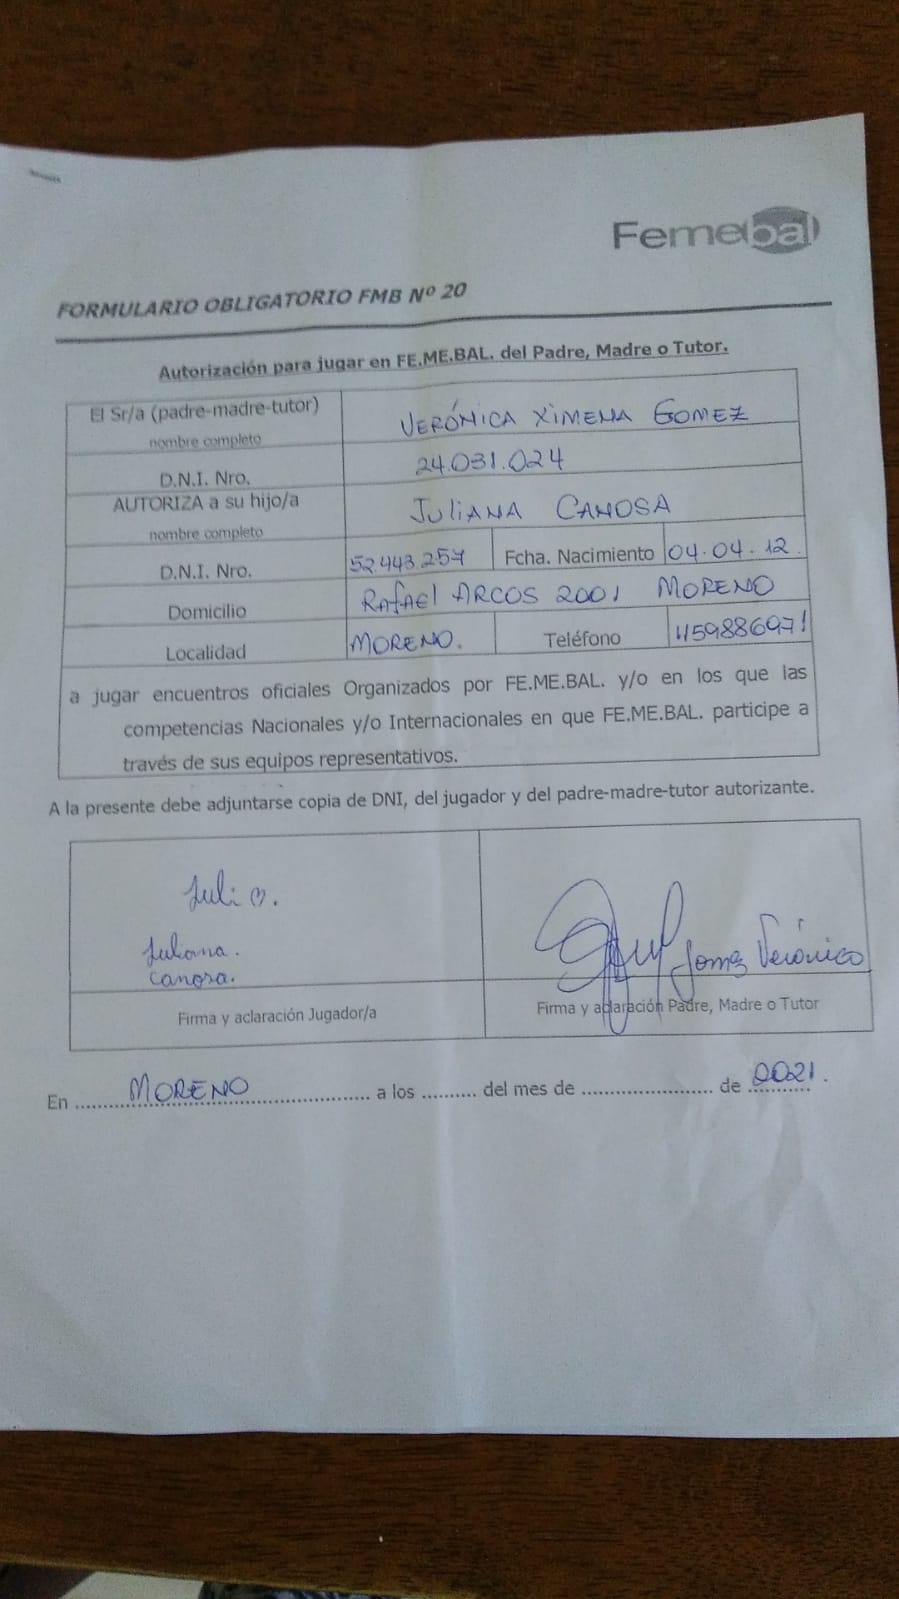 Femebal
FORMULARIO OBLIGATORIO FMB Nº 20
Autorización para jugar en FE.ME.BAL. del Padre, Madre o Tutor.
El Sr/a (padre-madre-tutor)
nombre completo
VERÓNICA XIMENA GOMEZ
D.N.I. Nro.
24.031.024
AUTORIZA a su hijo/a
nombre completo
JULIANA CANOSA
D.N.I. Nro.
52.443.257
Fcha. Nacimiento
04.04.12.
Domicilio
RAFAEL ARCOS 2001 MORENO
Localidad
MORENO.
Teléfono
1159886971
a jugar encuentros oficiales Organizados por FE.ME.BAL. y/o en los que las
competencias Nacionales y/o Internacionales en que FE.ME.BAL. participe a
través de sus equipos representativos.
A la presente debe adjuntarse copia de DNI, del jugador y del padre-madre-tutor autorizante.
Juli
Juliana.
Canosa.
Gomez Verónica
Firma y aclaración Jugador/a
Firma y aclaración Padre, Madre o Tutor
En ...... MORENO ...... a los .......... del mes de ...................... de 2021.